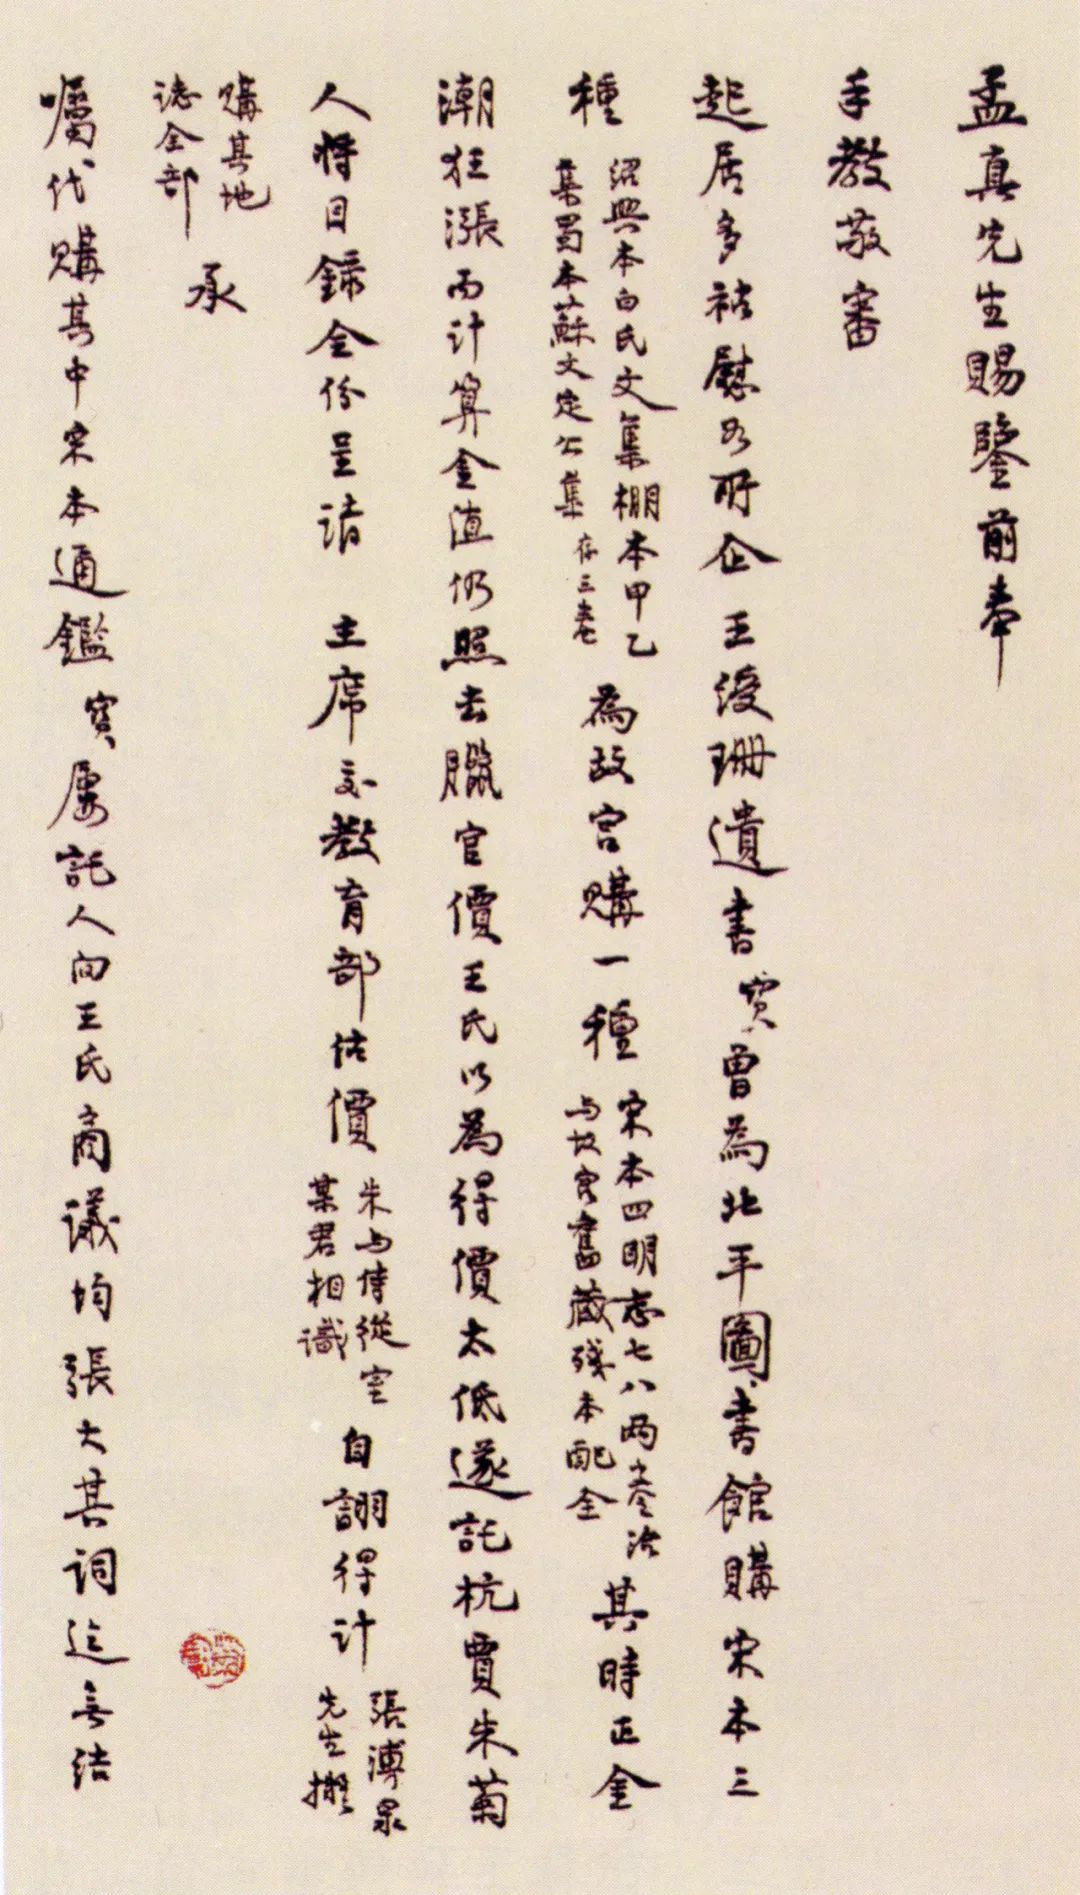 孟真先生賜鑒前奉
手教敬審
起居多祜慰如所企王綬珊遺書寶曾為北平圖書館購宋本三
種
紹興本白氏文集棚本甲乙
集蜀本蘇文定公集存三卷
為故宮購一種
宋本四明志七八兩卷洽
与故宮舊藏殘本配全
其時正金
潮狂漲而計算金值仍照去臘官價王氏以為得價太低遂託杭賈朱菊
人將目錄全份呈諸 主席交教育部估價
朱与侍從室
某君相識
自詡得計
張溥泉
先生擬
購其地
志全部
承
囑代購其中宋本通鑑寶屡託人向王氏商議均張大其詞迄無結